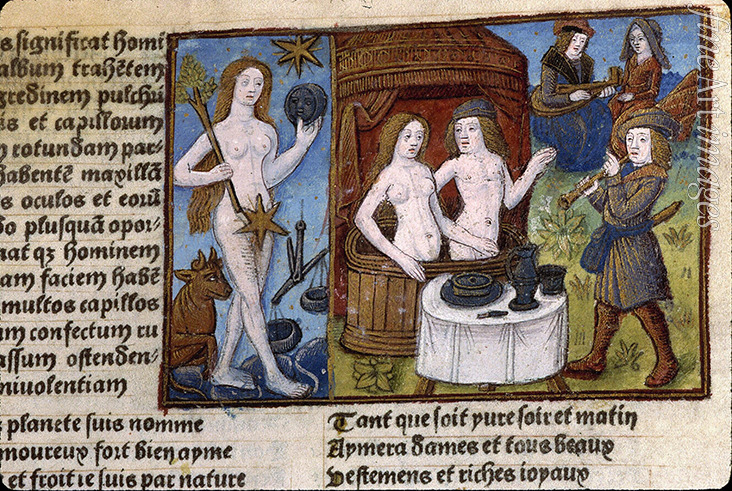 s significat homi
album trahētem
gredinem pulchri
is et capillorum
n rotundam par-
habentē maxillā
s oculos et eorū
do plusquā opor-
nat qz hominem
am faciem habē
multos capillos
um confectum ru
assum ostenden-
nivolentiam
planete suis nomme
moureux fort bien ayme
et froit ie suis par nature
Tant que soit yure soir et matin
Aymera dames et tous beaux
Vestemens et riches ioyaux